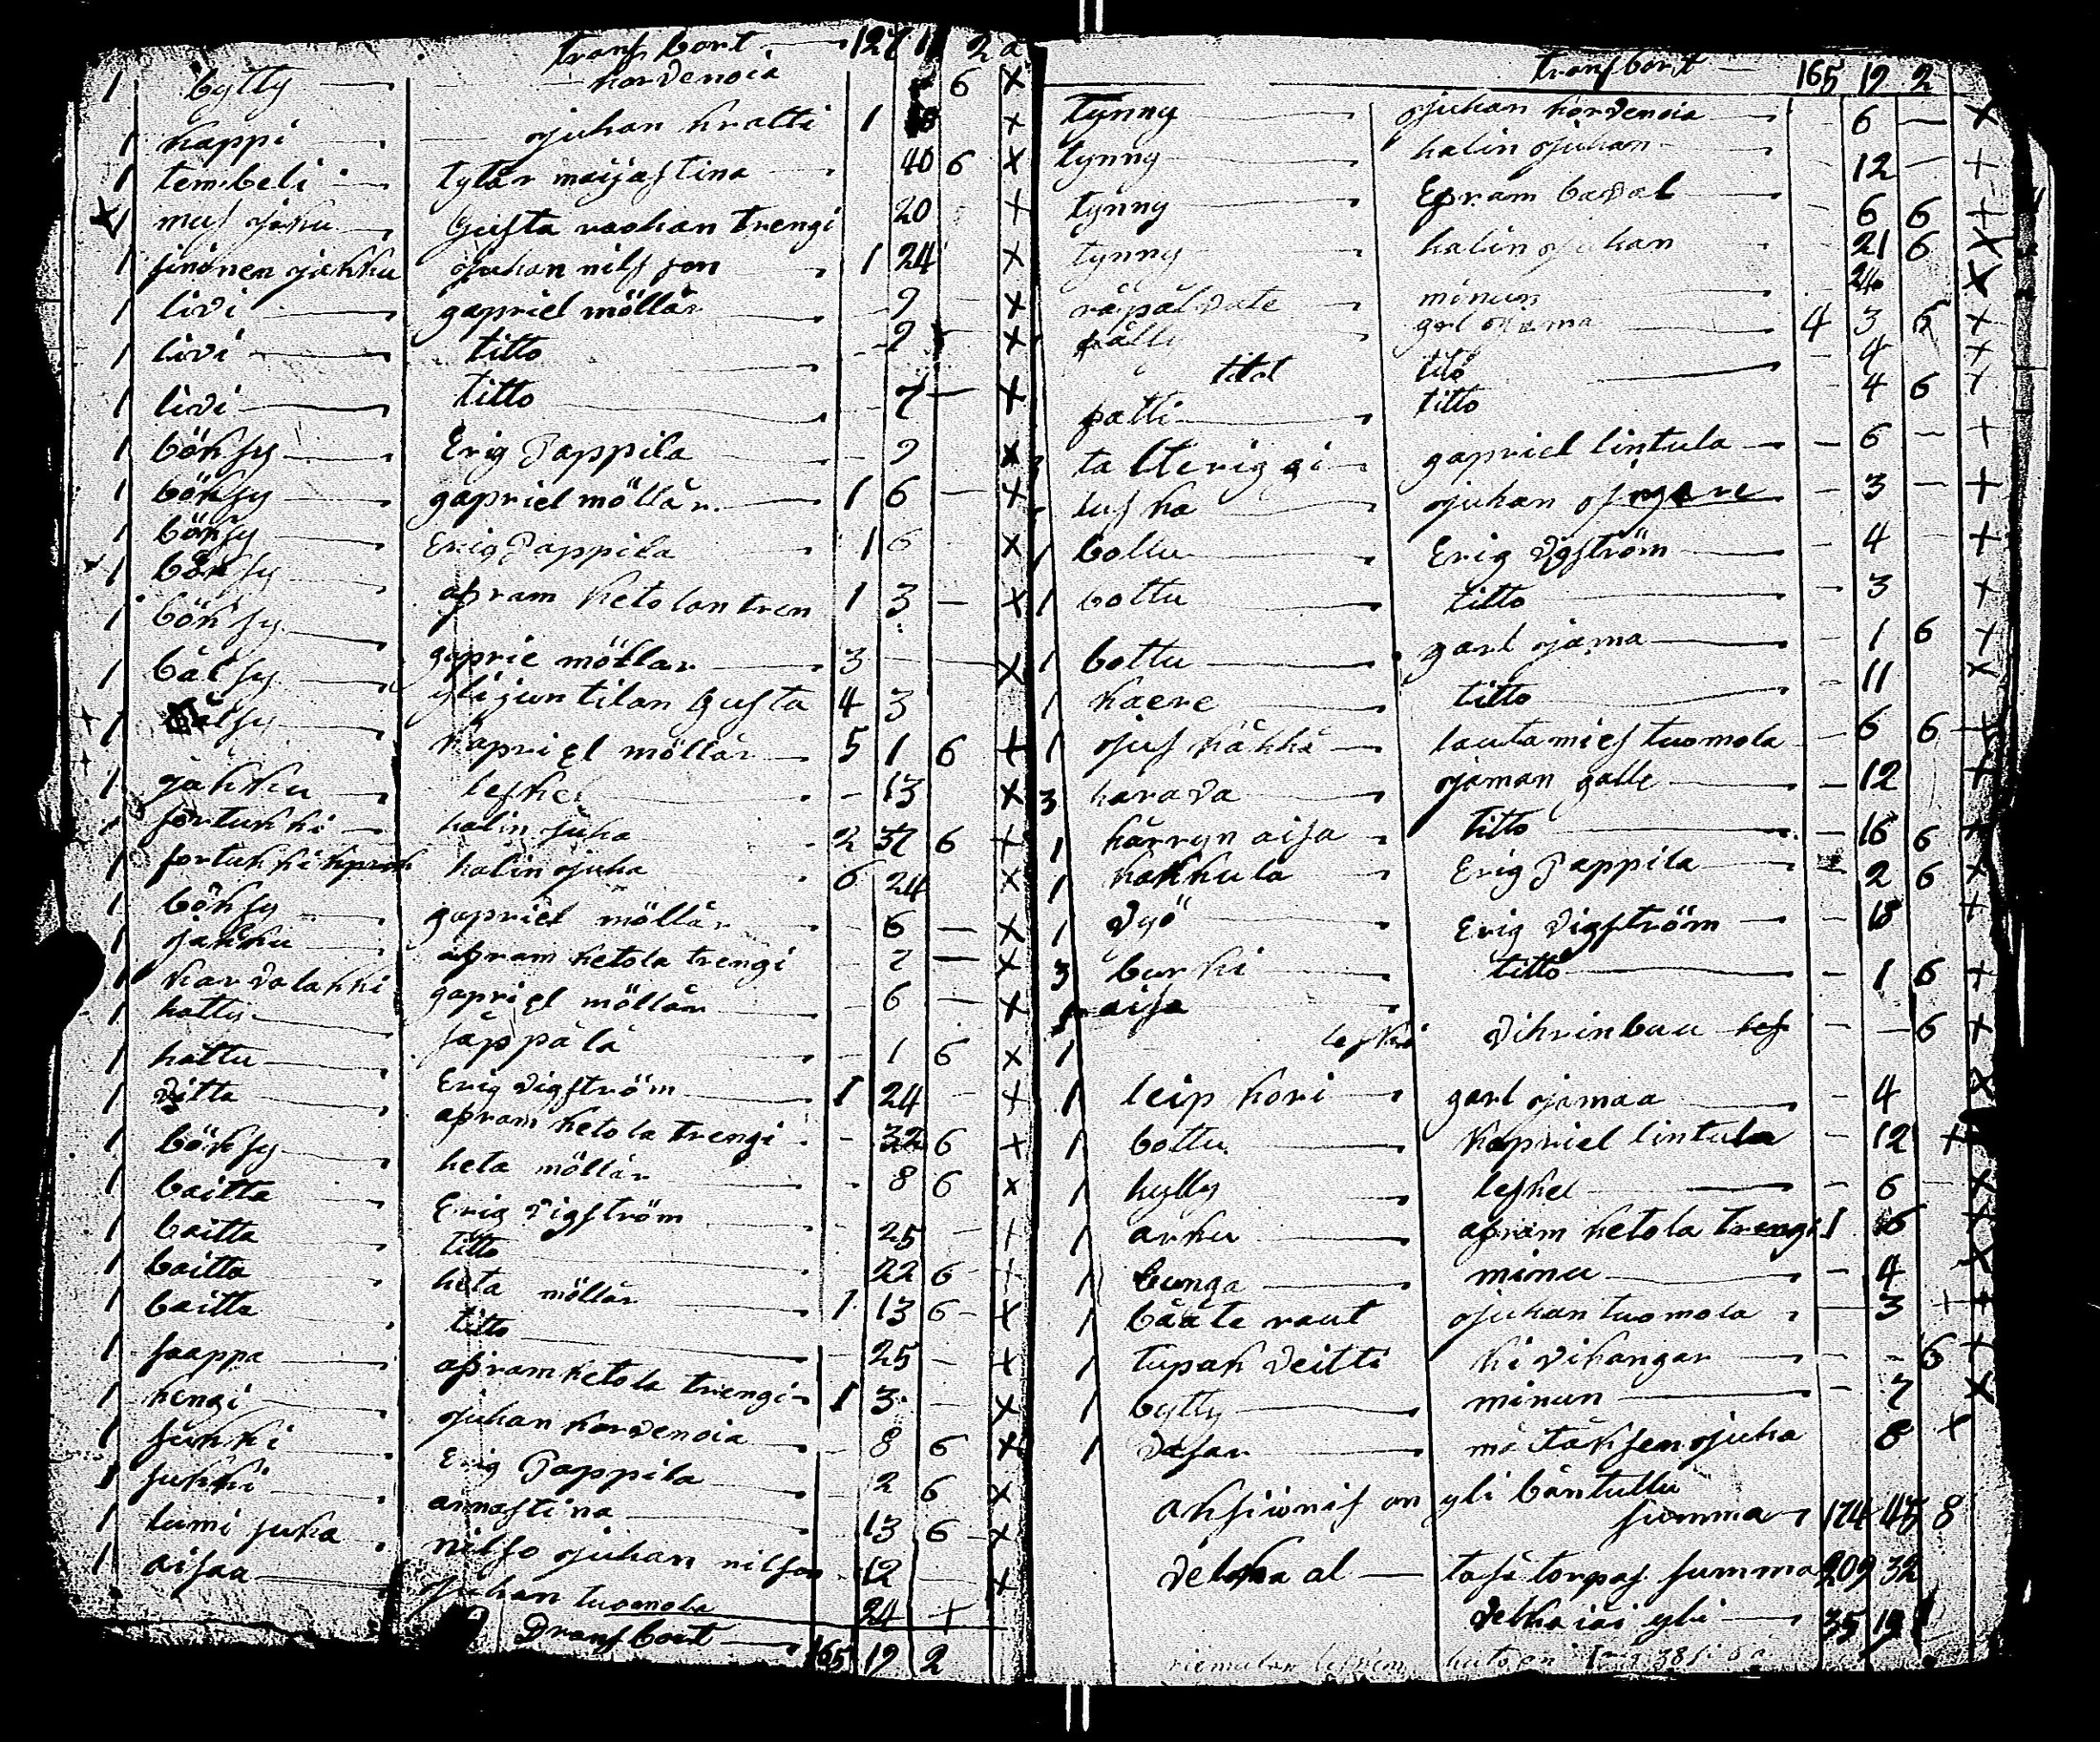 Transport 127 11 2
1 bytty kordenoia 6 x
1 kappi ojuhan kratti 1 x
1 tembeli tytär maijastina 40 6 x
1 mus ojaku Gusta raahan trengi 20 x
1 sininen ojakku ojuhan nils son 1 24 x
1 livi gapriel möllär 9 x
1 livi titto 9 x
1 livi titto 7 x
1 böksy Erig Pappila 9 x
1 böksy gapriel möllär 1 6 x
1 böksy Erig Pappila 1 6 x
1 böksy apram ketolan tren 1 3 x
1 böksy gaprie möllar 3 x
1 bälsy ylijuntilan Gusta 4 3
1 bälsy kapriel möllär 5 1 6 x
1 jakku leskel 13 x
1 sortukki kalin juha 2 37 6 x
1 sortukki kalin ojuha 6 24 x
1 böksy gapriel möllär 6 x
1 ojakku apram ketola trengi 7 x
1 kardalakki gapriel möllär 6 x
1 hattu säppälä 1 6 x
1 hattu Erig Vigström 1 24 x
1 vitta apram ketola trengi 32 6 x
1 böksy heta möllär 8 6 x
1 baitta Erig Vigström 25 x
1 baitta titto 22 6 x
1 baitta heta möllär 1 13 6 x
1 baitta titto 25 x
1 saappa apram ketola trengi 1 3 x
1 kengi ojuhan kordenoia 8 6 x
1 sukki Erig Pappila 2 6 x
1 sukki annastina 13 6 x
1 lumi suka nilso ojuhan nilson 12 x
1 aisaa ojuhan tuomola 24 x
Dransbort 165 19 2
transbort 165 19 2
tynny ojuhan kordenoia 6 x
tynny kalin ojuhan 12 x
tynny Epram badal 6 6 x
tynny kalin ojuhan 21 6 x
räpäldate minun 24 x
gal ojama 4 3 6 x
titol tito 4 x
patti titto 4 6 x
talteriggi gapriel lintula 6 x
luska ojuhan 3 x
1 bollu Erig Vgström 4 x
1 bottu titto 3 x
1 bottu garl ojama 1 6 x
1 kaere titto 11 x
1 ojus käkkä lautamies tuomola 6 6 x
3 harada ojaman galle 12 x
1 kärryn aisa titto 16 6 x
1 kakkula Erig Pappila 2 6 x
1 vyö Erig Vigström 18 x
3 burki titto 1 6 x
1 aisa
1 leski vihrinbuu les 6 x
1 leip kori garl ojamaa 4 x
1 bottu kapriel lintula 12 x
1 hylly leskel 6 x
1 arku apram ketola trengi 1 16 x
1 bunga minu 4 x
1 bääte raut ojuhan tuomola 3 x
1 tupak veitti kividkangar 6 x
1 bytty minun 7 x
1 vasar mätäksen ojuha 8 x
aksionis on yli bäntullu
summa 174 45 8
velka al tasä torpas summa 209 32
velkaiäi yli 35 19